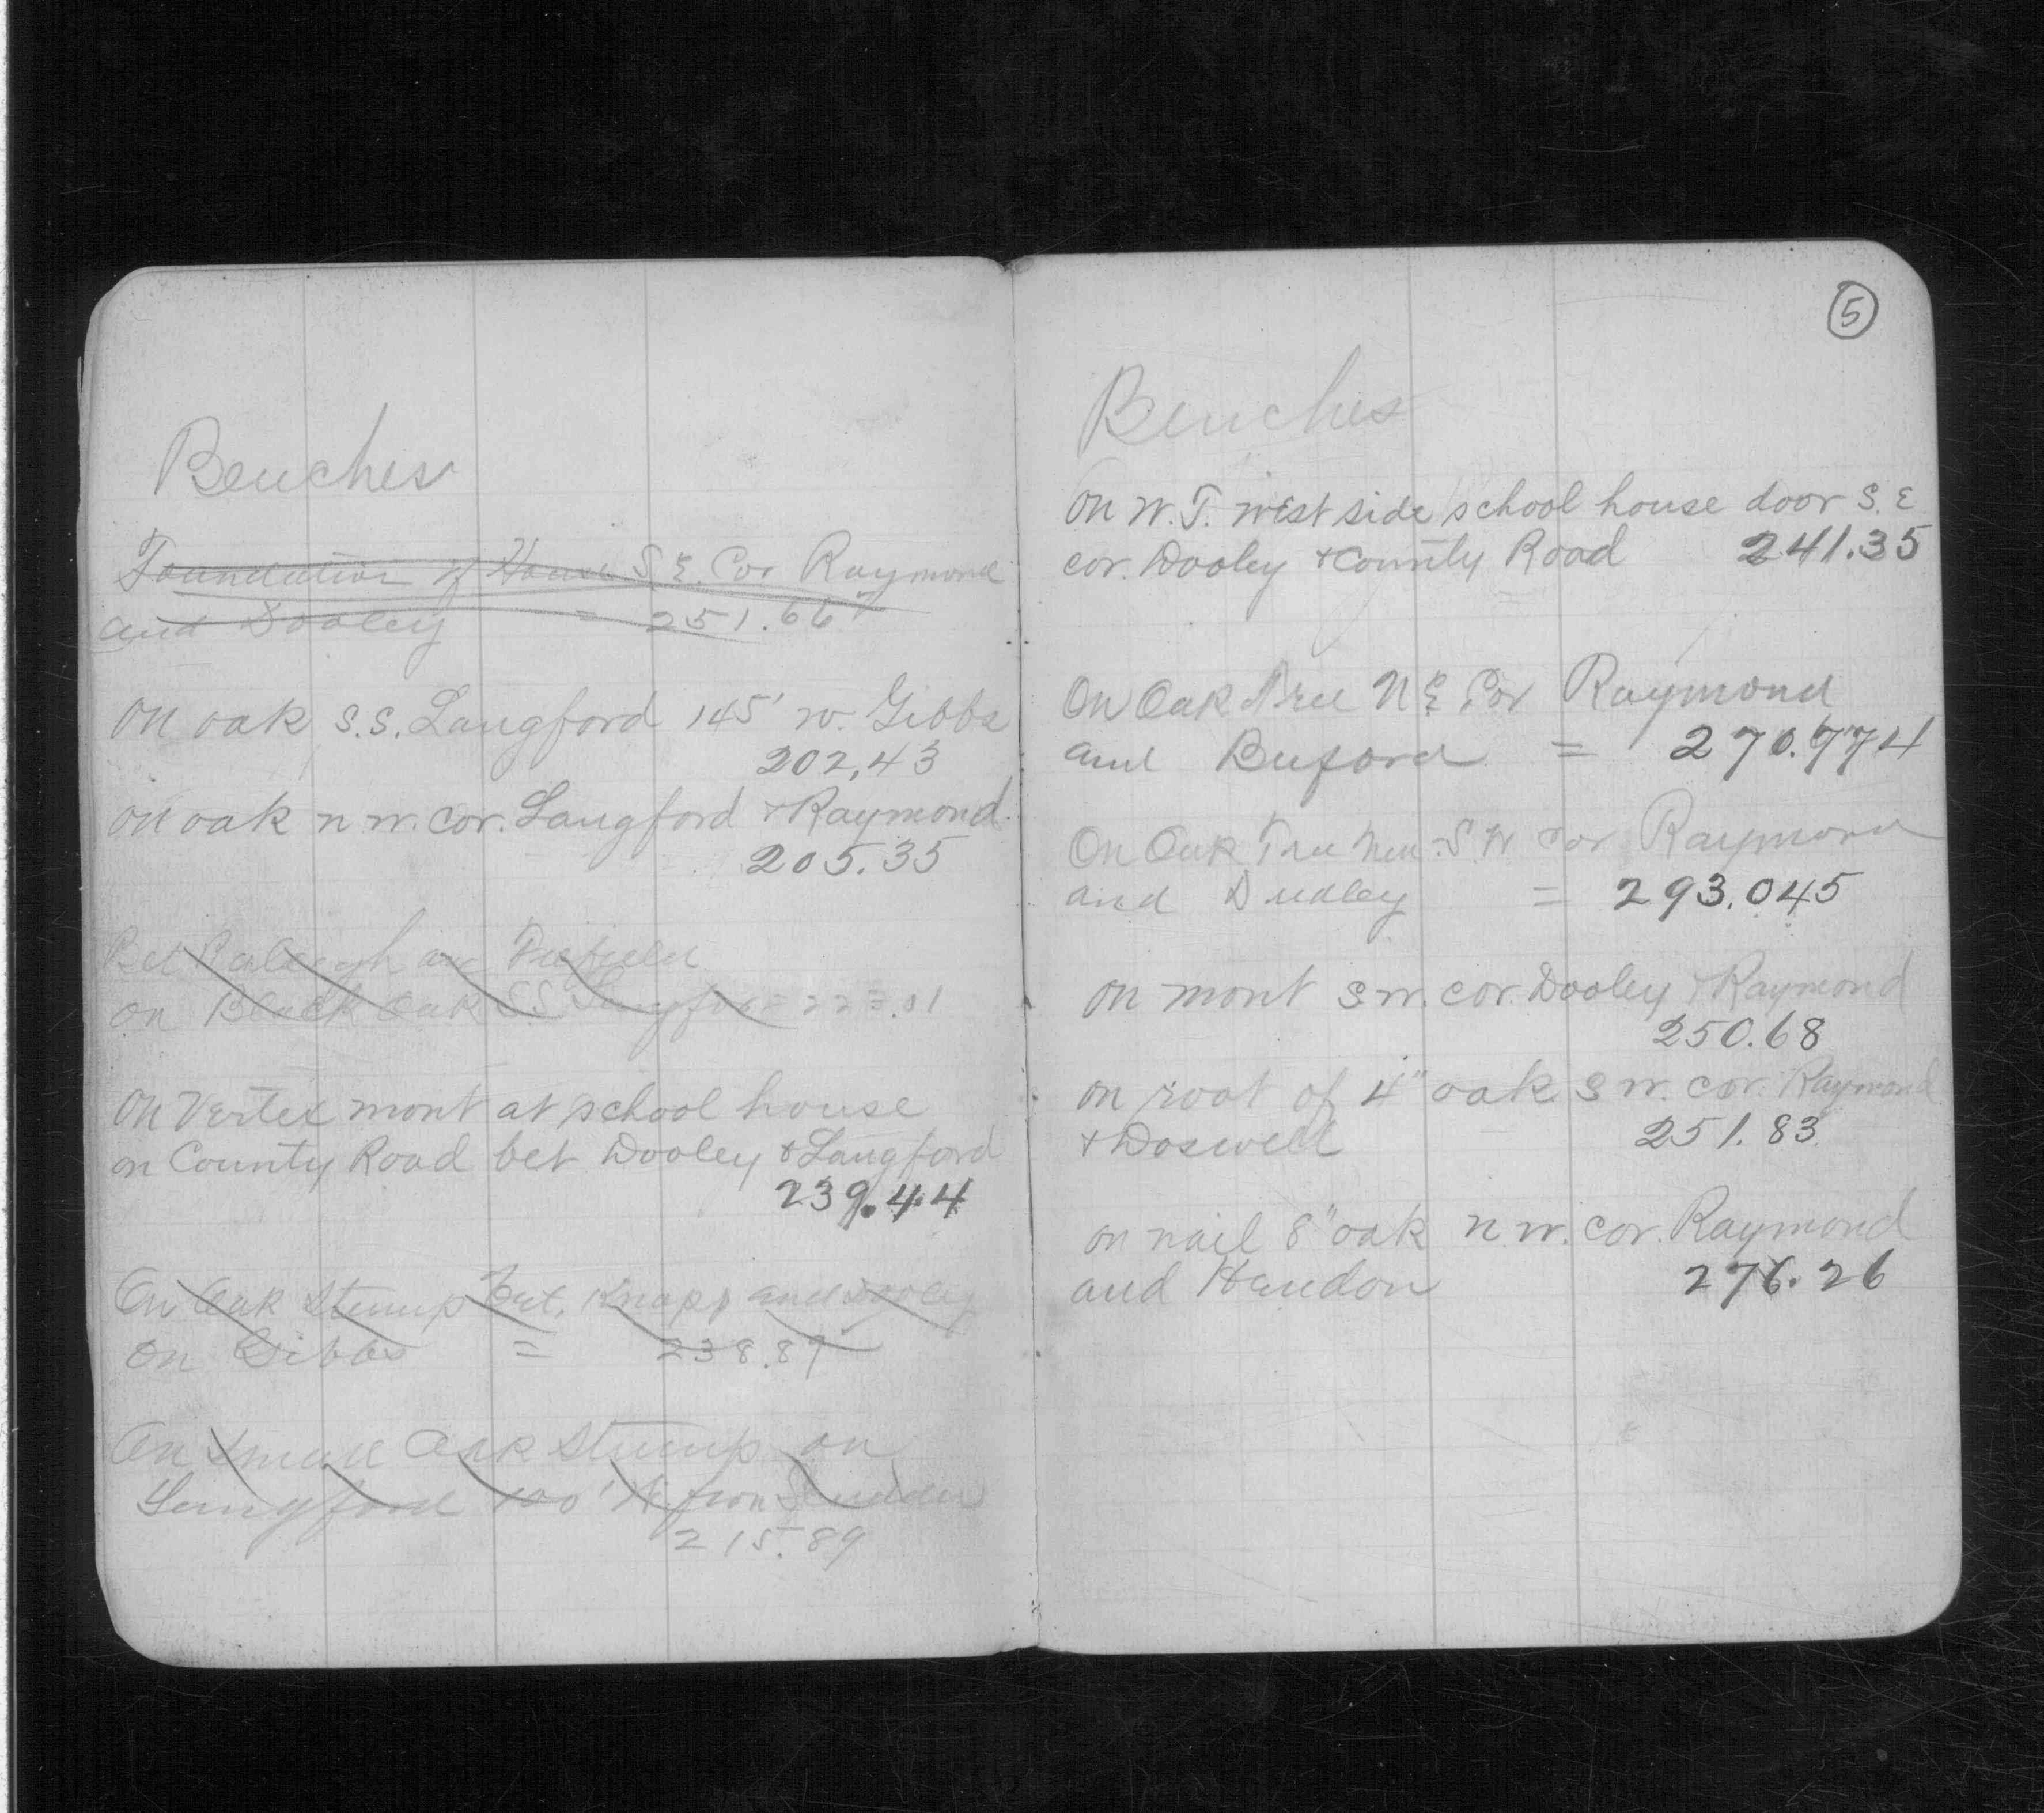 Benches
Foundation of House S.E. Cor Raymond
and Dooley = 251.667
On oak S.S. Langford 145' w. Gibbs
202.43
on oak n w. cor. Langford & Raymond
205.35
Bet Raleigh and Fifield
on Black Oak S.S. Langford = 223.01
On Vertex mont at school house
on County Road bet Dooley & Langford
239.44
On Oak Stump Bet. Knapp and Dooley
on Gibbs = 238.89
On small Oak Stump on
Langford 100' W from
215.89
5
Benches
On W.T. west side school house door S.E
cor. Dooley & County Road 241.35
On Oak Tree N E Cor Raymond
and Buford = 270.774
On Oak Tree Near S.W cor Raymond
and Dudley = 293.045
on mont S w. cor. Dooley & Raymond
250.68
on root of 4" oak S w. cor. Raymond
& Doswell 251.83
on nail 8" oak n w. cor. Raymond
and Hendon 276.26